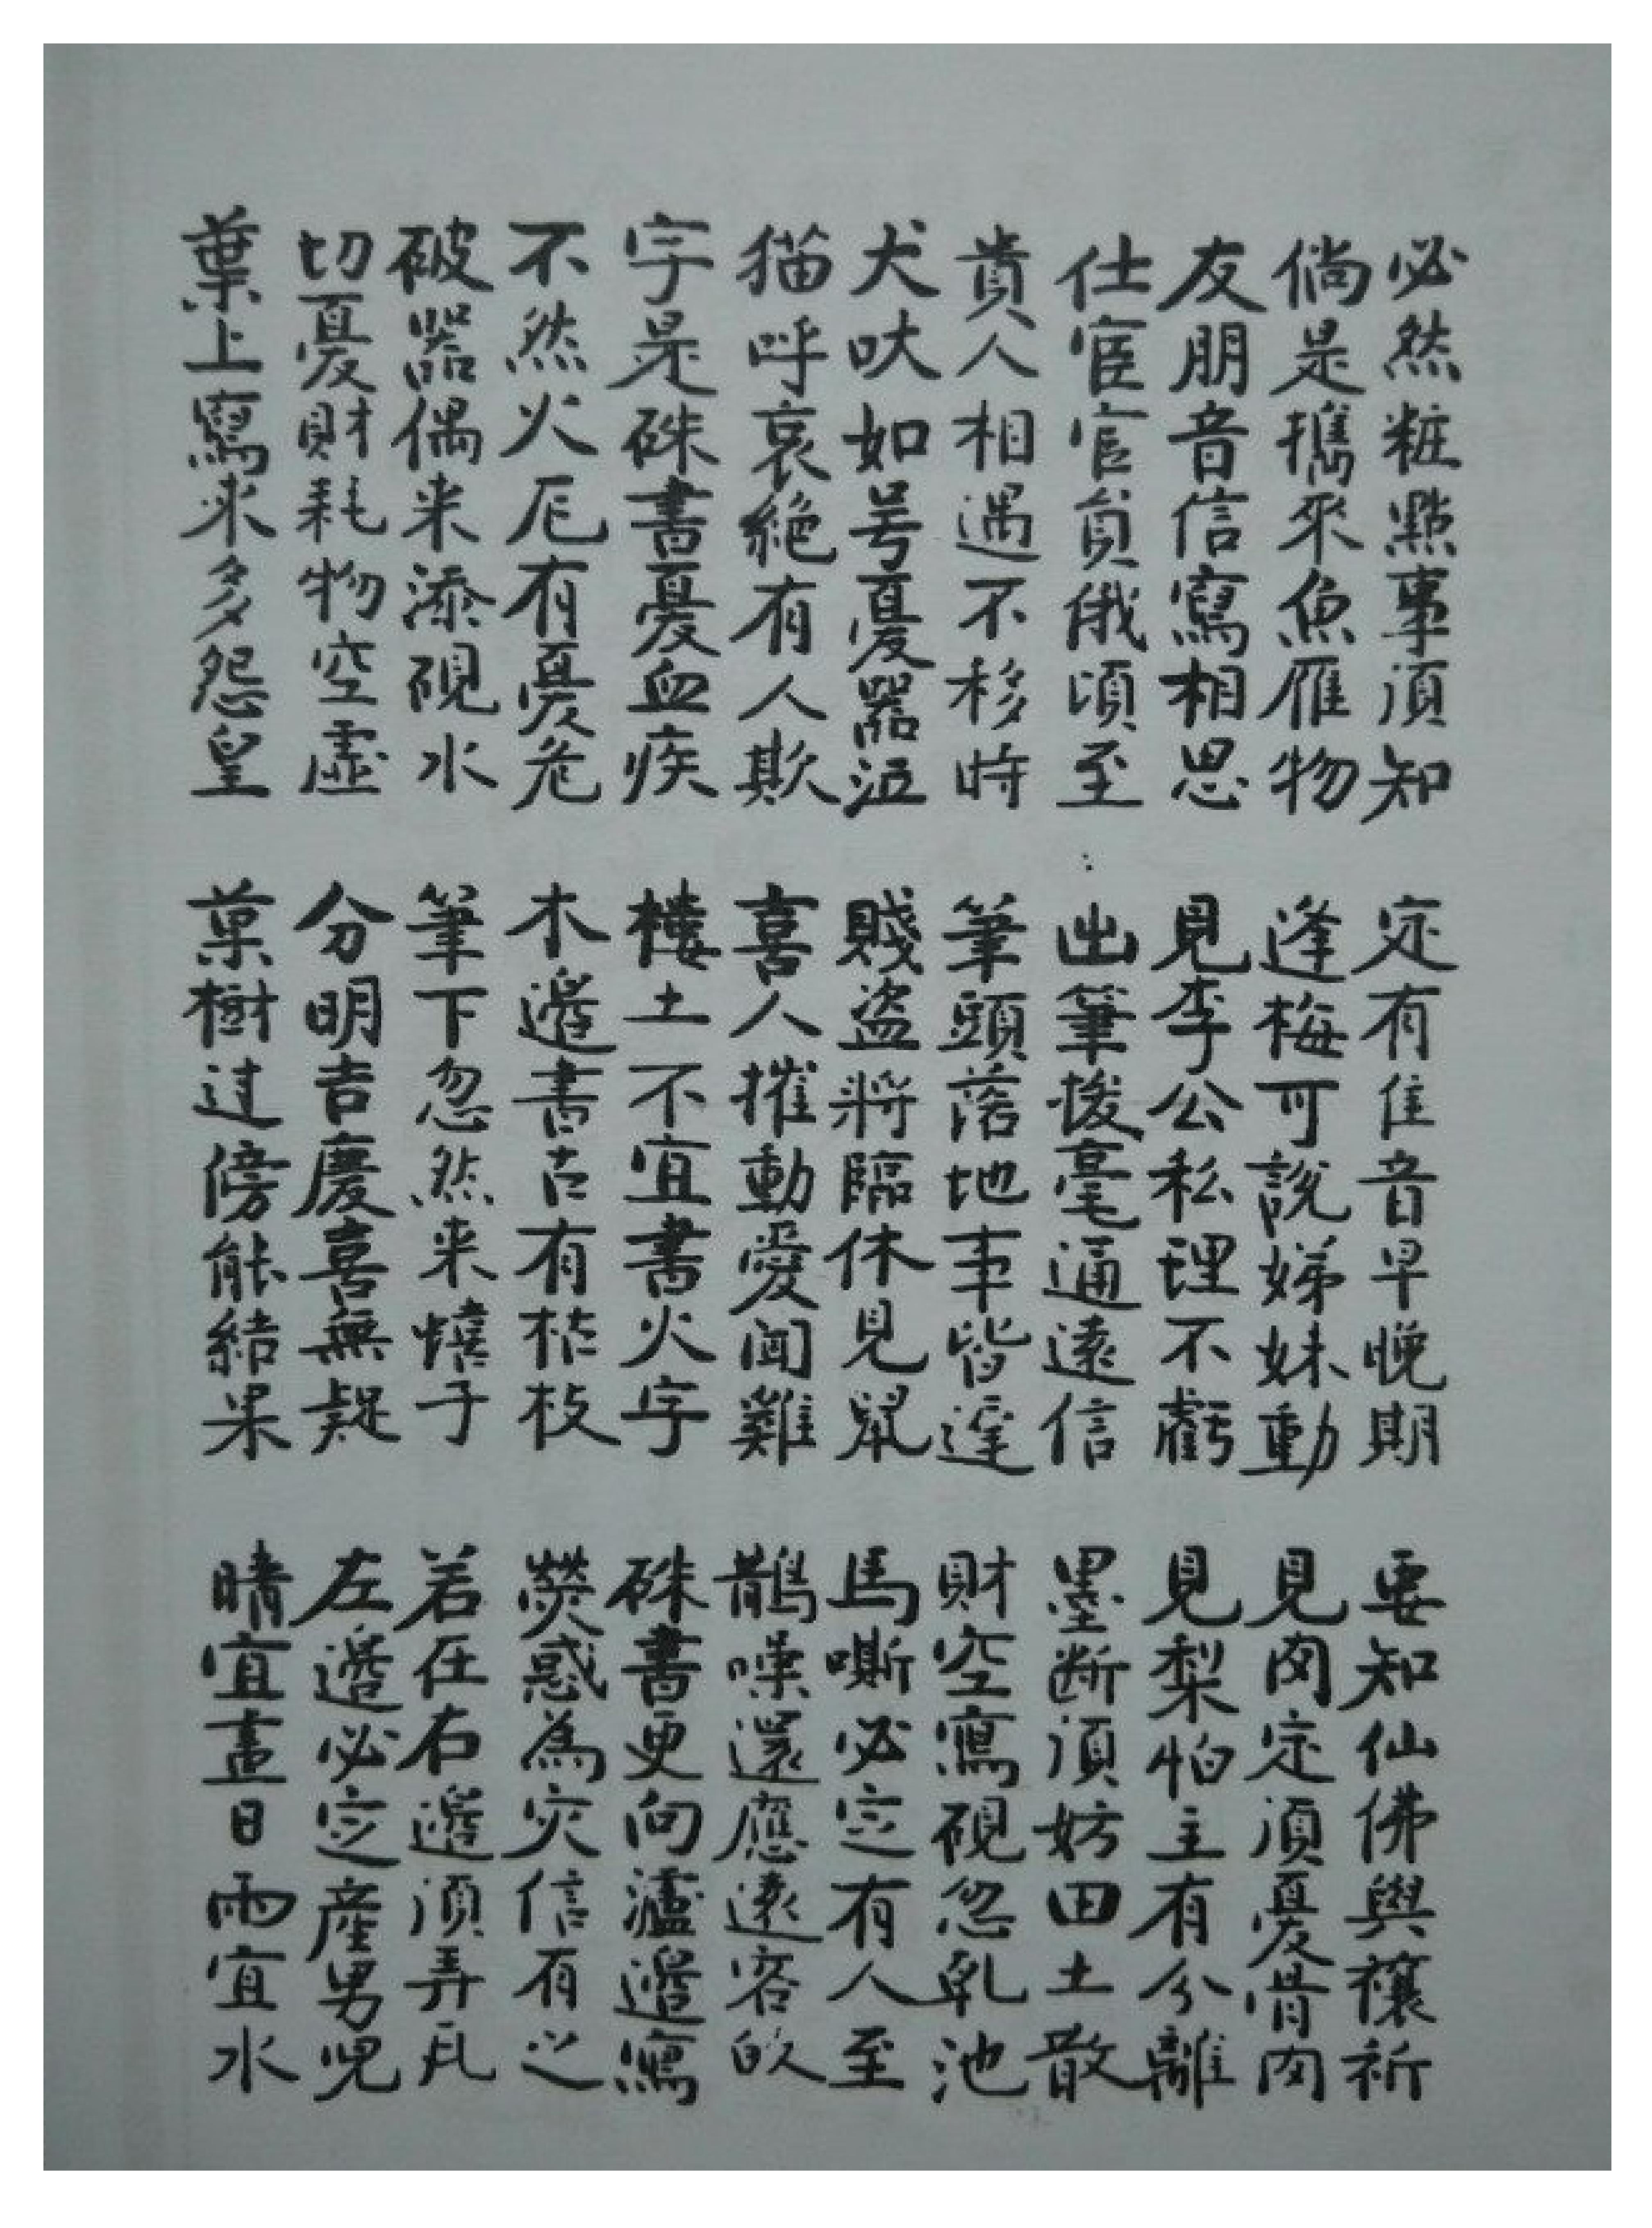 必然粧點事須知
倘是攜來魚雁物
友朋音信寫相思
仕宦官員俄頃至
貴人相遇不移時
犬吠如号憂器泣
猫呼哀絕有人欺
字是硃書憂血疾
不然火厄有憂危
破器偶来添硯水
切憂財耗物空虛
葉上寫來多怨皇
定有佳音早晚期
逢梅可說娣妹動
見李公私理不虧
出筆拨毫通遠信
筆頭落地事皆遲
賤盜將臨休見鼠
喜人摧動愛闻雞
樓土不宜書火字
木邊書古有枯枝
筆下忽然来憘子
分明吉慶喜無疑
菓樹过傍能結果
要知仙佛與禳祈
見肉定須憂骨肉
見梨怕主有分離
墨断須妨田土散
財空寫硯忽乳池
馬嘶必定有人至
鵲噪還應遠客的
硃書更向瀘邊寫
熒惑為灾信有之
若在右邊須弄瓦
左邊必定産男兒
晴宜畫日雨宜水